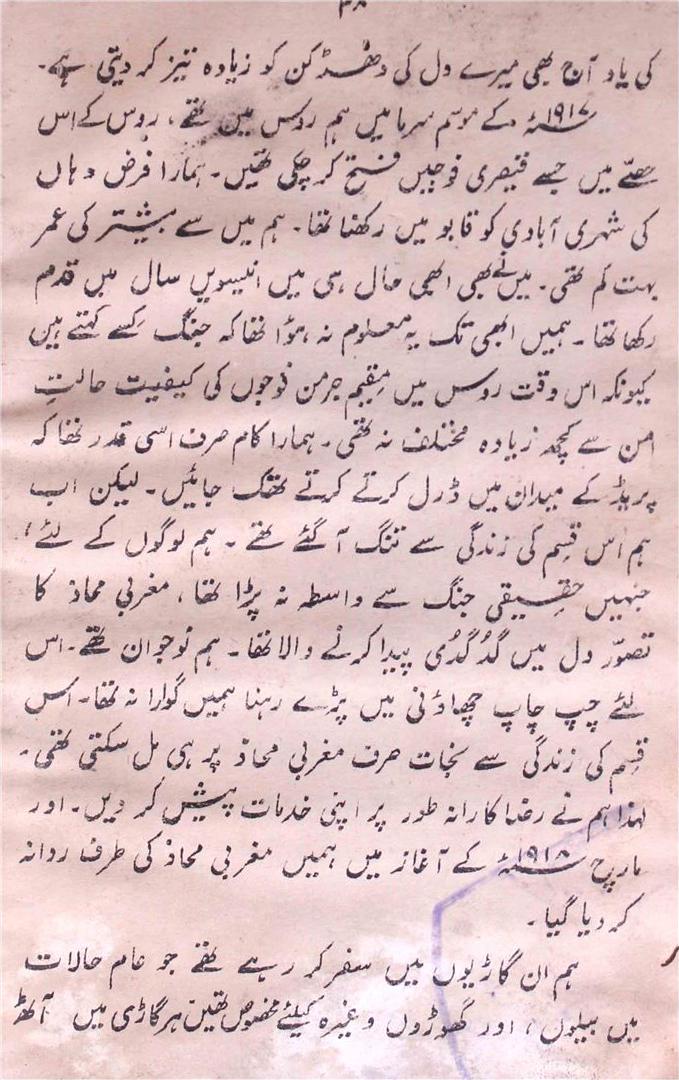 ۳۸
کی یاد آج بھی میرے دل کی دھڑکن کو زیادہ تیز کر دیتی ہے۔
۱۹۱۷ء کے موسم سرما میں ہم روس میں تھے، روس کے اس
حصّے میں جسے قیصری فوجیں فتح کر چکی تھیں۔ ہمارا فرض وہاں
کی شہری آبادی کو قابو میں رکھنا تھا۔ ہم میں سے بیشتر کی عمر
بہت کم تھی۔ میں نے بھی ابھی حال ہی میں انیسویں سال میں قدم
رکھا تھا۔ ہمیں ابھی تک یہ معلوم نہ ہوُا تھا کہ جنگ کِسے کہتے ہیں
کیونکہ اس وقت روس میں مقیم جرمن فوجوں کی کیفیت حالتِ
امن سے کچھ زیادہ مختلف نہ تھی۔ ہمارا کام صرف اسی قدر تھا کہ
پریڈ کے میدان میں ڈرل کرتے کرتے تھک جائیں۔ لیکن اب
ہم اس قسم کی زندگی سے تنگ آ گئے تھے۔ ہم لوگوں کے لئے،
جنہیں حقیقی جنگ سے واسطہ نہ پڑا تھا، مغربی محاذ کا
تصوّر دل میں گُدگُدی پیدا کرنے والا تھا۔ ہم نوجوان تھے۔ اس
لئے چپ چاپ چھاؤنی میں پڑے رہنا ہمیں گوارا نہ تھا۔ اس
قِسم کی زندگی سے نجات صرف مغربی محاذ پر ہی مل سکتی تھی۔
لہٰذا ہم نے رضاکارانہ طور پر اپنی خدمات پیش کر دیں۔ اور
مارچ ۱۹۱۸ء کے آغاز میں ہمیں مغربی محاذ کی طرف روانہ
کر دیا گیا۔
ہم ان گاڑیوں میں سفر کر رہے تھے جو عام حالات
میں بیلوں، اور گھوڑوں وغیرہ کیلئے مخصوص تھیں ہر گاڑی میں آٹھ